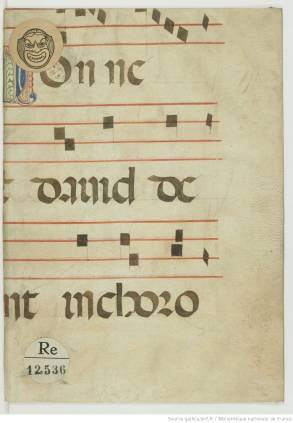 on nc
t dauid dc
nt inchoro
Re
12536
Source gallica.bnf.fr / Bibliothèque nationale de France